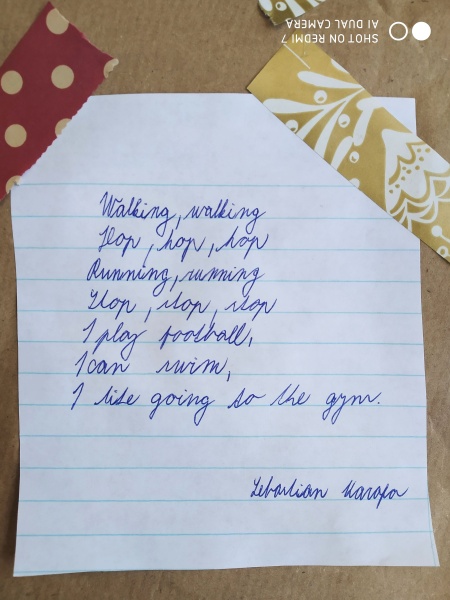 SHOT ON REDMI 7
AI DUAL CAMERA
Walking, walking
Hop, hop, hop
Running, running
Stop, stop, stop
I play football,
I can swim,
I like going to the gym.
Sebastian